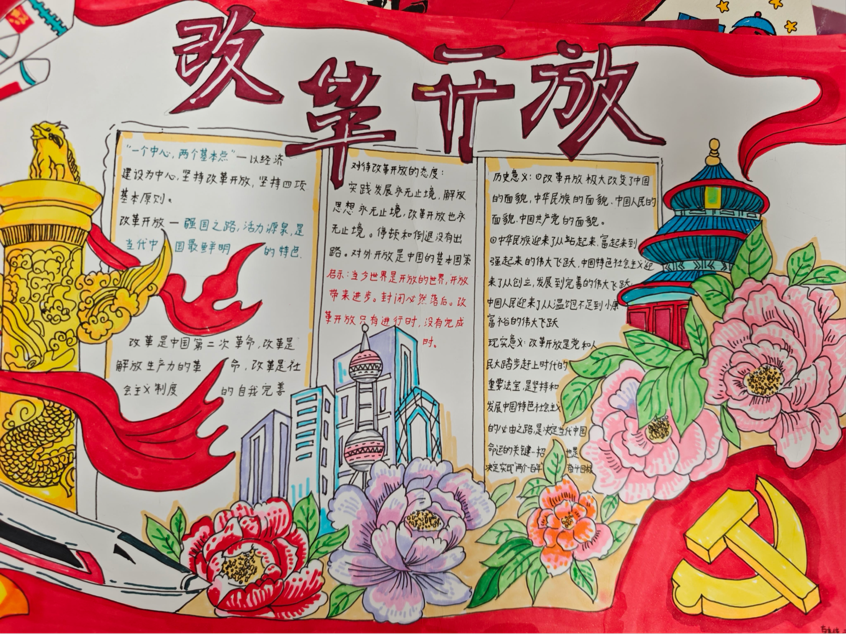 改革开放
"一个中心，两个基本点"—以经济
建设为中心，坚持改革开放，坚持四项
基本原则。
改革开放 — 强国之路，活力源泉，是
当代中国最鲜明的特色
改革是中国第二次革命，改革是
解放生产力的革命，改革是社
会主义制度的自我完善
对待改革开放的态度：
实践发展永无止境，解放
思想永无止境，改革开放也永
无止境。停顿和倒退没有出
路。对外开放是中国的基本国策
启示：当今世界是开放的世界，开放
带来进步，封闭必然落后。改
革开放只有进行时，没有完成
时。
历史意义：①改革开放极大改变了中国
的面貌，中华民族的面貌，中国人民的
面貌，中国共产党的面貌。
②中华民族迎来了从站起来、富起来到
强起来的伟大飞跃，中国特色社会主义迎
来了从创立、发展到完善的伟大飞跃
中国人民迎来了从温饱不足到小康
富裕的伟大飞跃
现实意义：改革开放是党和人
民大踏步赶上时代的
重要法宝，是坚持和
发展中国特色社会主义
的必由之路，是决定当代中国
命运的关键一招 也是
决定实现两个百年